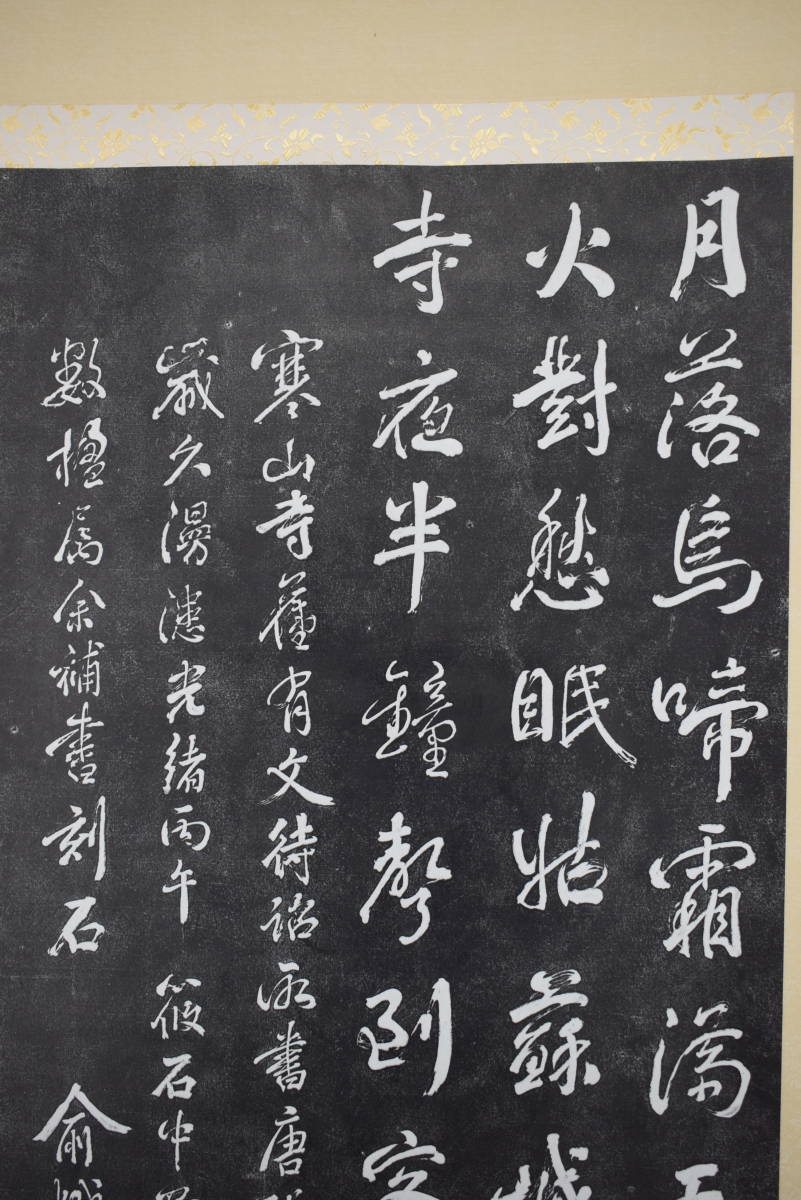 月落烏啼霜滿天
火對愁眠姑蘇城
寺夜半鐘聲到客
寒山寺舊有文待詔所書唐
歲久漫漶光緒丙午筱石中丞
數楹属余補書刻石 俞樾